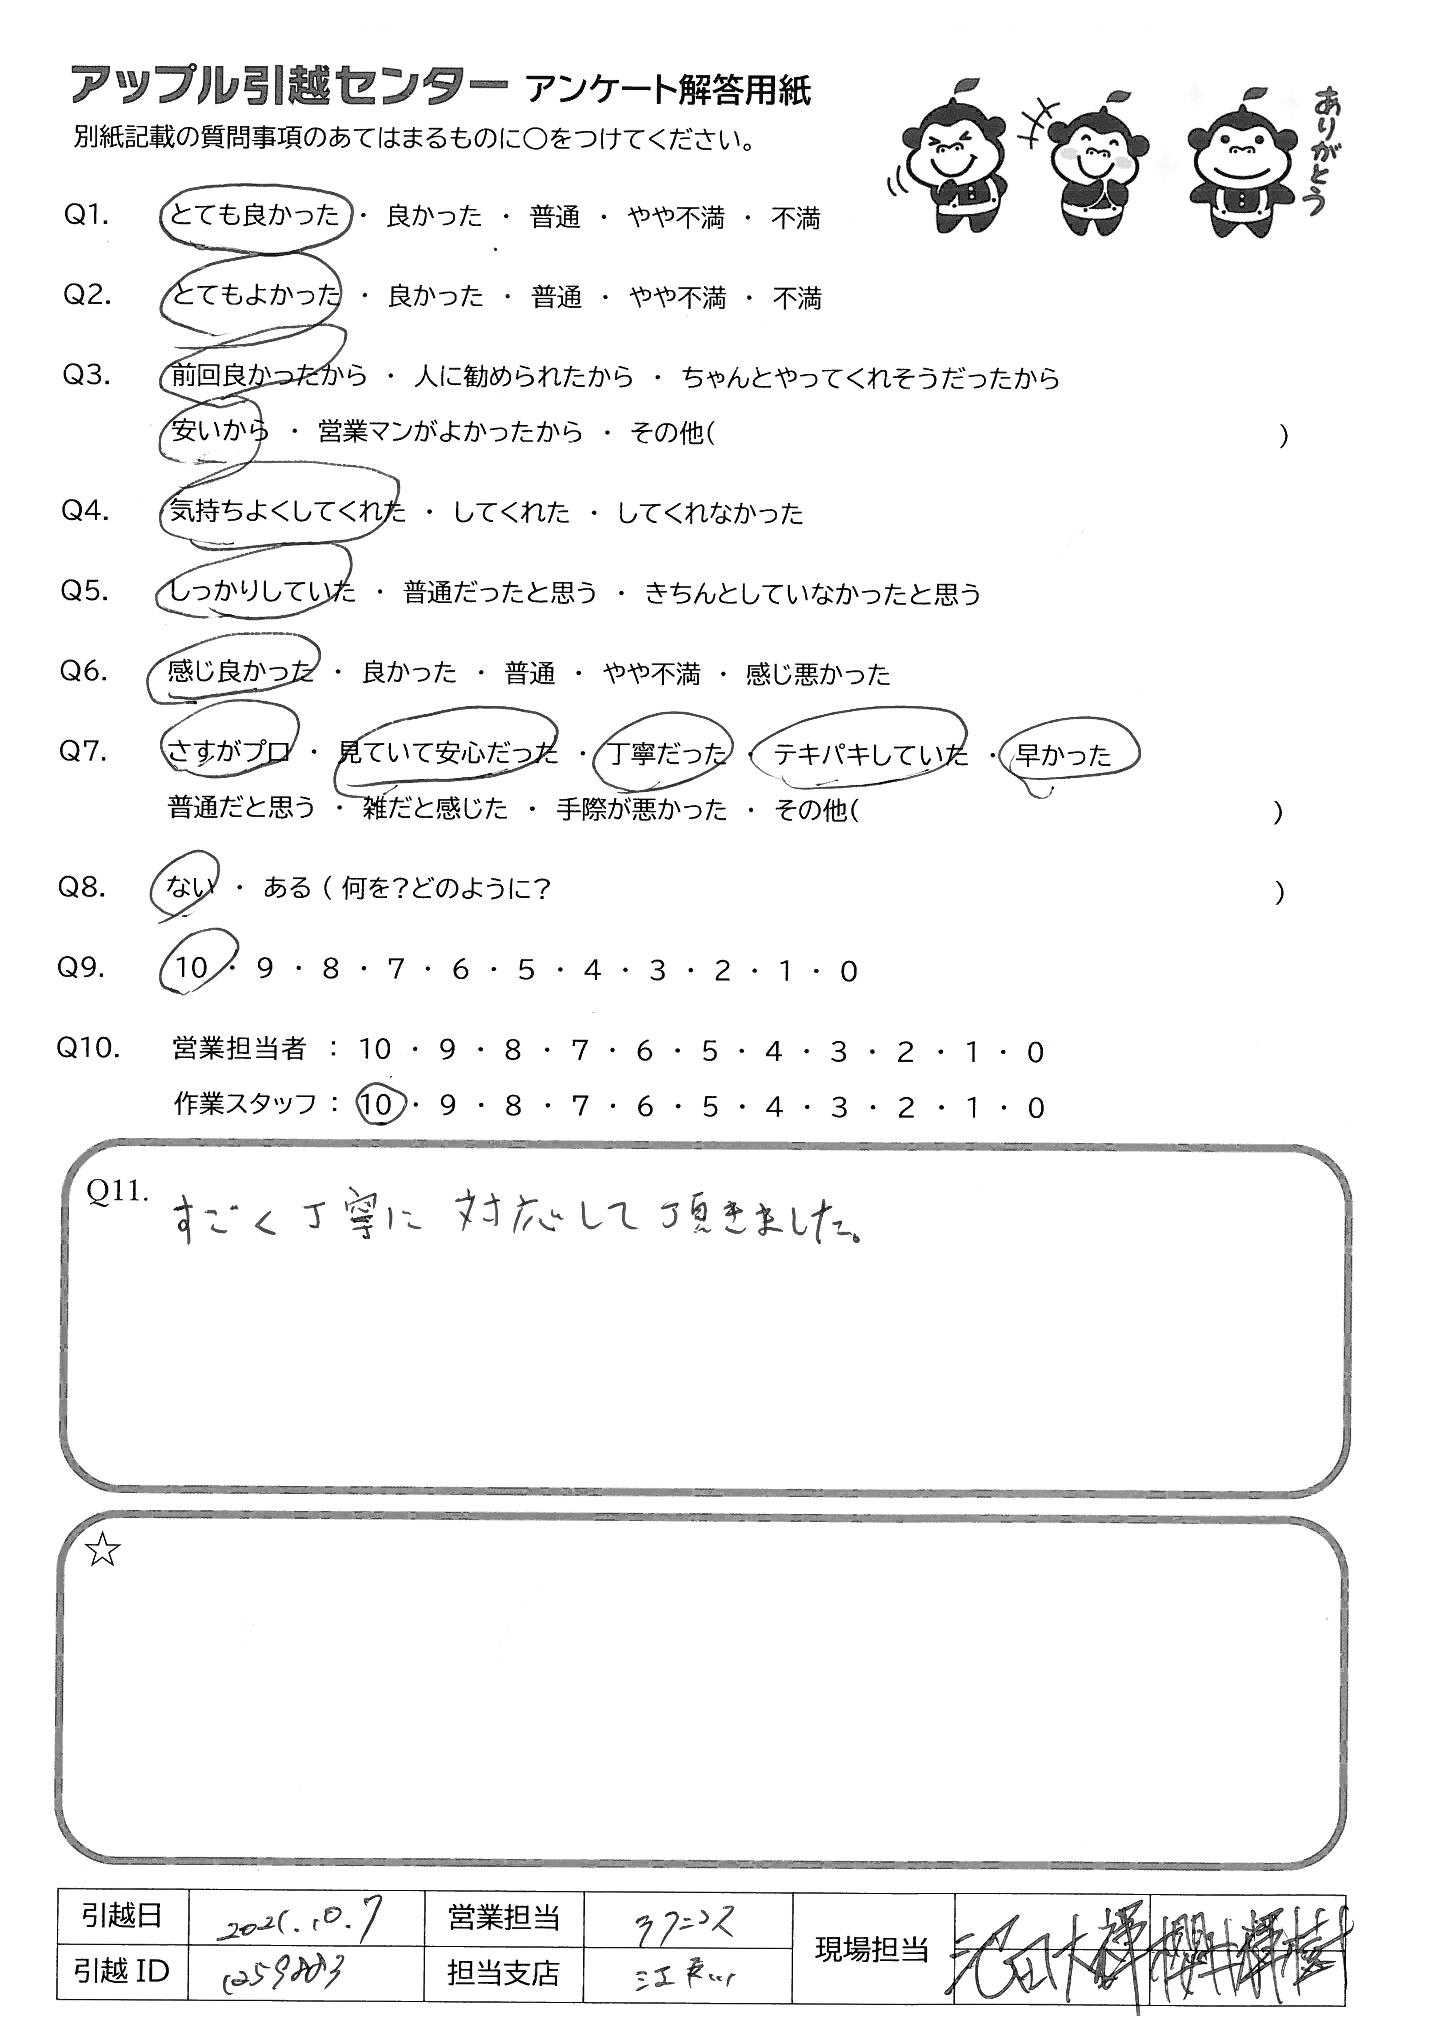 アップル引越センター アンケート解答用紙
別紙記載の質問事項のあてはまるものに〇をつけてください。
ありがとう
Q1. とても良かった ・ 良かった ・ 普通 ・ やや不満 ・ 不満
Q2. とてもよかった ・ 良かった ・ 普通 ・ やや不満 ・ 不満
Q3. 前回良かったから ・ 人に勧められたから ・ ちゃんとやってくれそうだったから
安いから ・ 営業マンがよかったから ・ その他( )
Q4. 気持ちよくしてくれた ・ してくれた ・ してくれなかった
Q5. しっかりしていた ・ 普通だったと思う ・ きちんとしていなかったと思う
Q6. 感じ良かった ・ 良かった ・ 普通 ・ やや不満 ・ 感じ悪かった
Q7. さすがプロ ・ 見ていて安心だった ・ 丁寧だった ・ テキパキしていた ・ 早かった
普通だと思う ・ 雑だと感じた ・ 手際が悪かった ・ その他( )
Q8. ない ・ ある ( 何を?どのように? )
Q9. 10 ・ 9 ・ 8 ・ 7 ・ 6 ・ 5 ・ 4 ・ 3 ・ 2 ・ 1 ・ 0
Q10. 営業担当者 : 10 ・ 9 ・ 8 ・ 7 ・ 6 ・ 5 ・ 4 ・ 3 ・ 2 ・ 1 ・ 0
作業スタッフ : 10 ・ 9 ・ 8 ・ 7 ・ 6 ・ 5 ・ 4 ・ 3 ・ 2 ・ 1 ・ 0
Q11. すごく丁寧に 対応して頂きました。
☆
引越日 営業担当 現場担当 池田大輝 櫻井輝樹
引越 ID 担当支店